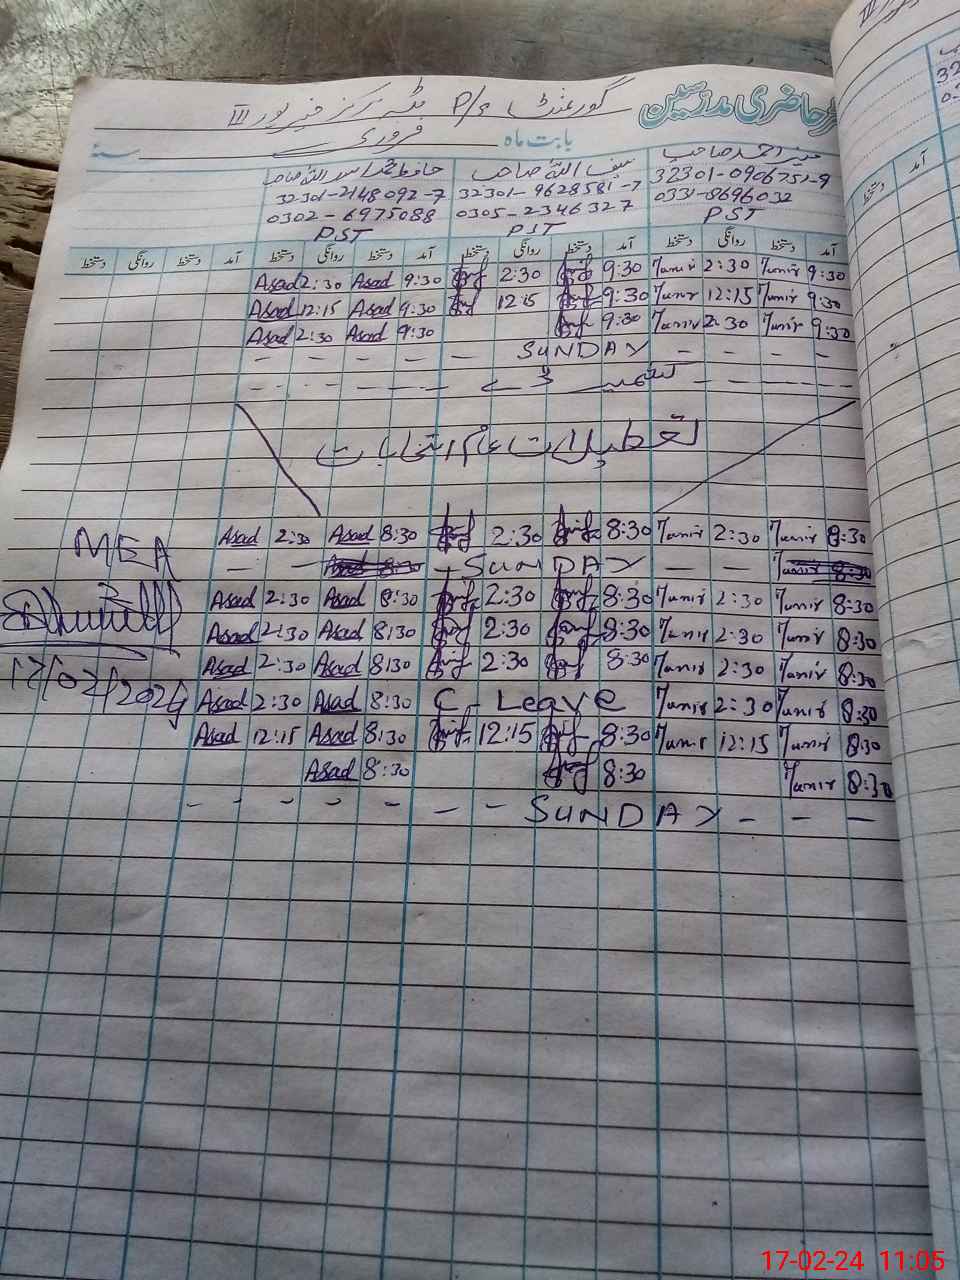 حاضری مدرسین گورنمنٹ P/S مرکز III
بابت ماہ فروری سنہ
صاحب 32301-0906751-9 0331-8696032 PST
سیف اللہ صاحب 32301-9628581-7 0305-2346327 PST
حافظ محمد اسد اللہ صاحب 32301-2148092-7 0302-6975088 PST
آمد دستخط روانگی دستخط آمد دستخط روانگی دستخط آمد دستخط روانگی دستخط آمد دستخط روانگی دستخط
Asad 2:30 Asad 9:30 2:30 9:30 Munir 2:30 Munir 9:30
Asad 12:15 Asad 9:30 12:15 9:30 Munir 12:15 Munir 9:30
Asad 2:30 Asad 9:30 9:30 Munir 2:30 Munir 9:30
- - - - - SUNDAY - - - -
تعطیلات عام انتخابات
MEA Asad 2:30 Asad 8:30 2:30 8:30 Munir 2:30 Munir 8:30
- - - SUNDAY - -
Asad 2:30 Asad 8:30 2:30 8:30 Munir 2:30 Munir 8:30
Asad 2:30 Asad 8:30 2:30 8:30 Munir 2:30 Munir 8:30
17/02/2024 Asad 2:30 Asad 8:30 2:30 8:30 Munir 2:30 Munir 8:30
Asad 2:30 Asad 8:30 C. Leave Munir 2:30 Munir 8:30
Asad 12:15 Asad 8:30 12:15 8:30 Munir 12:15 Munir 8:30
Asad 8:30 8:30 Munir 8:30
- - - - - - - SUNDAY - - -
17-02-24 11:05